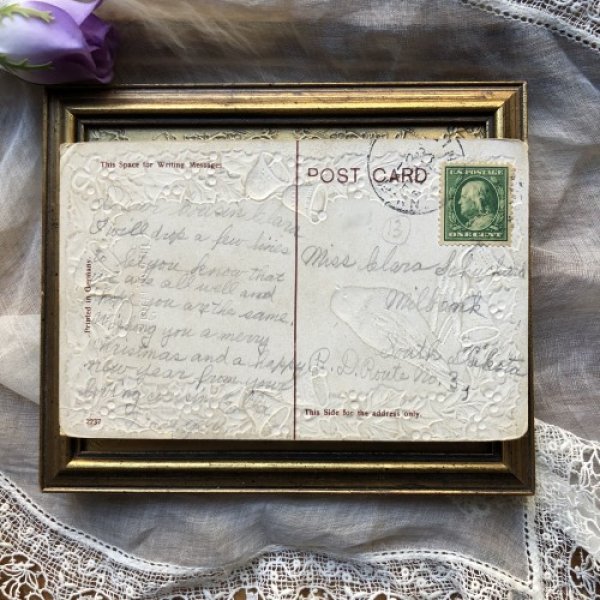 This Space for Writing Messages.
POST CARD
U.S. POSTAGE
ONE CENT
13
Dear cousin Clara
I will drop a few lines
to let you know that
we are all well and
hope you are the same.
Wishing you a merry
christmas and a happy
new year from your
loving cousin
Miss Clara
Milbank
South Dakota
R. D. Route No. 3
Printed in Germany
2237
This Side for the address only.